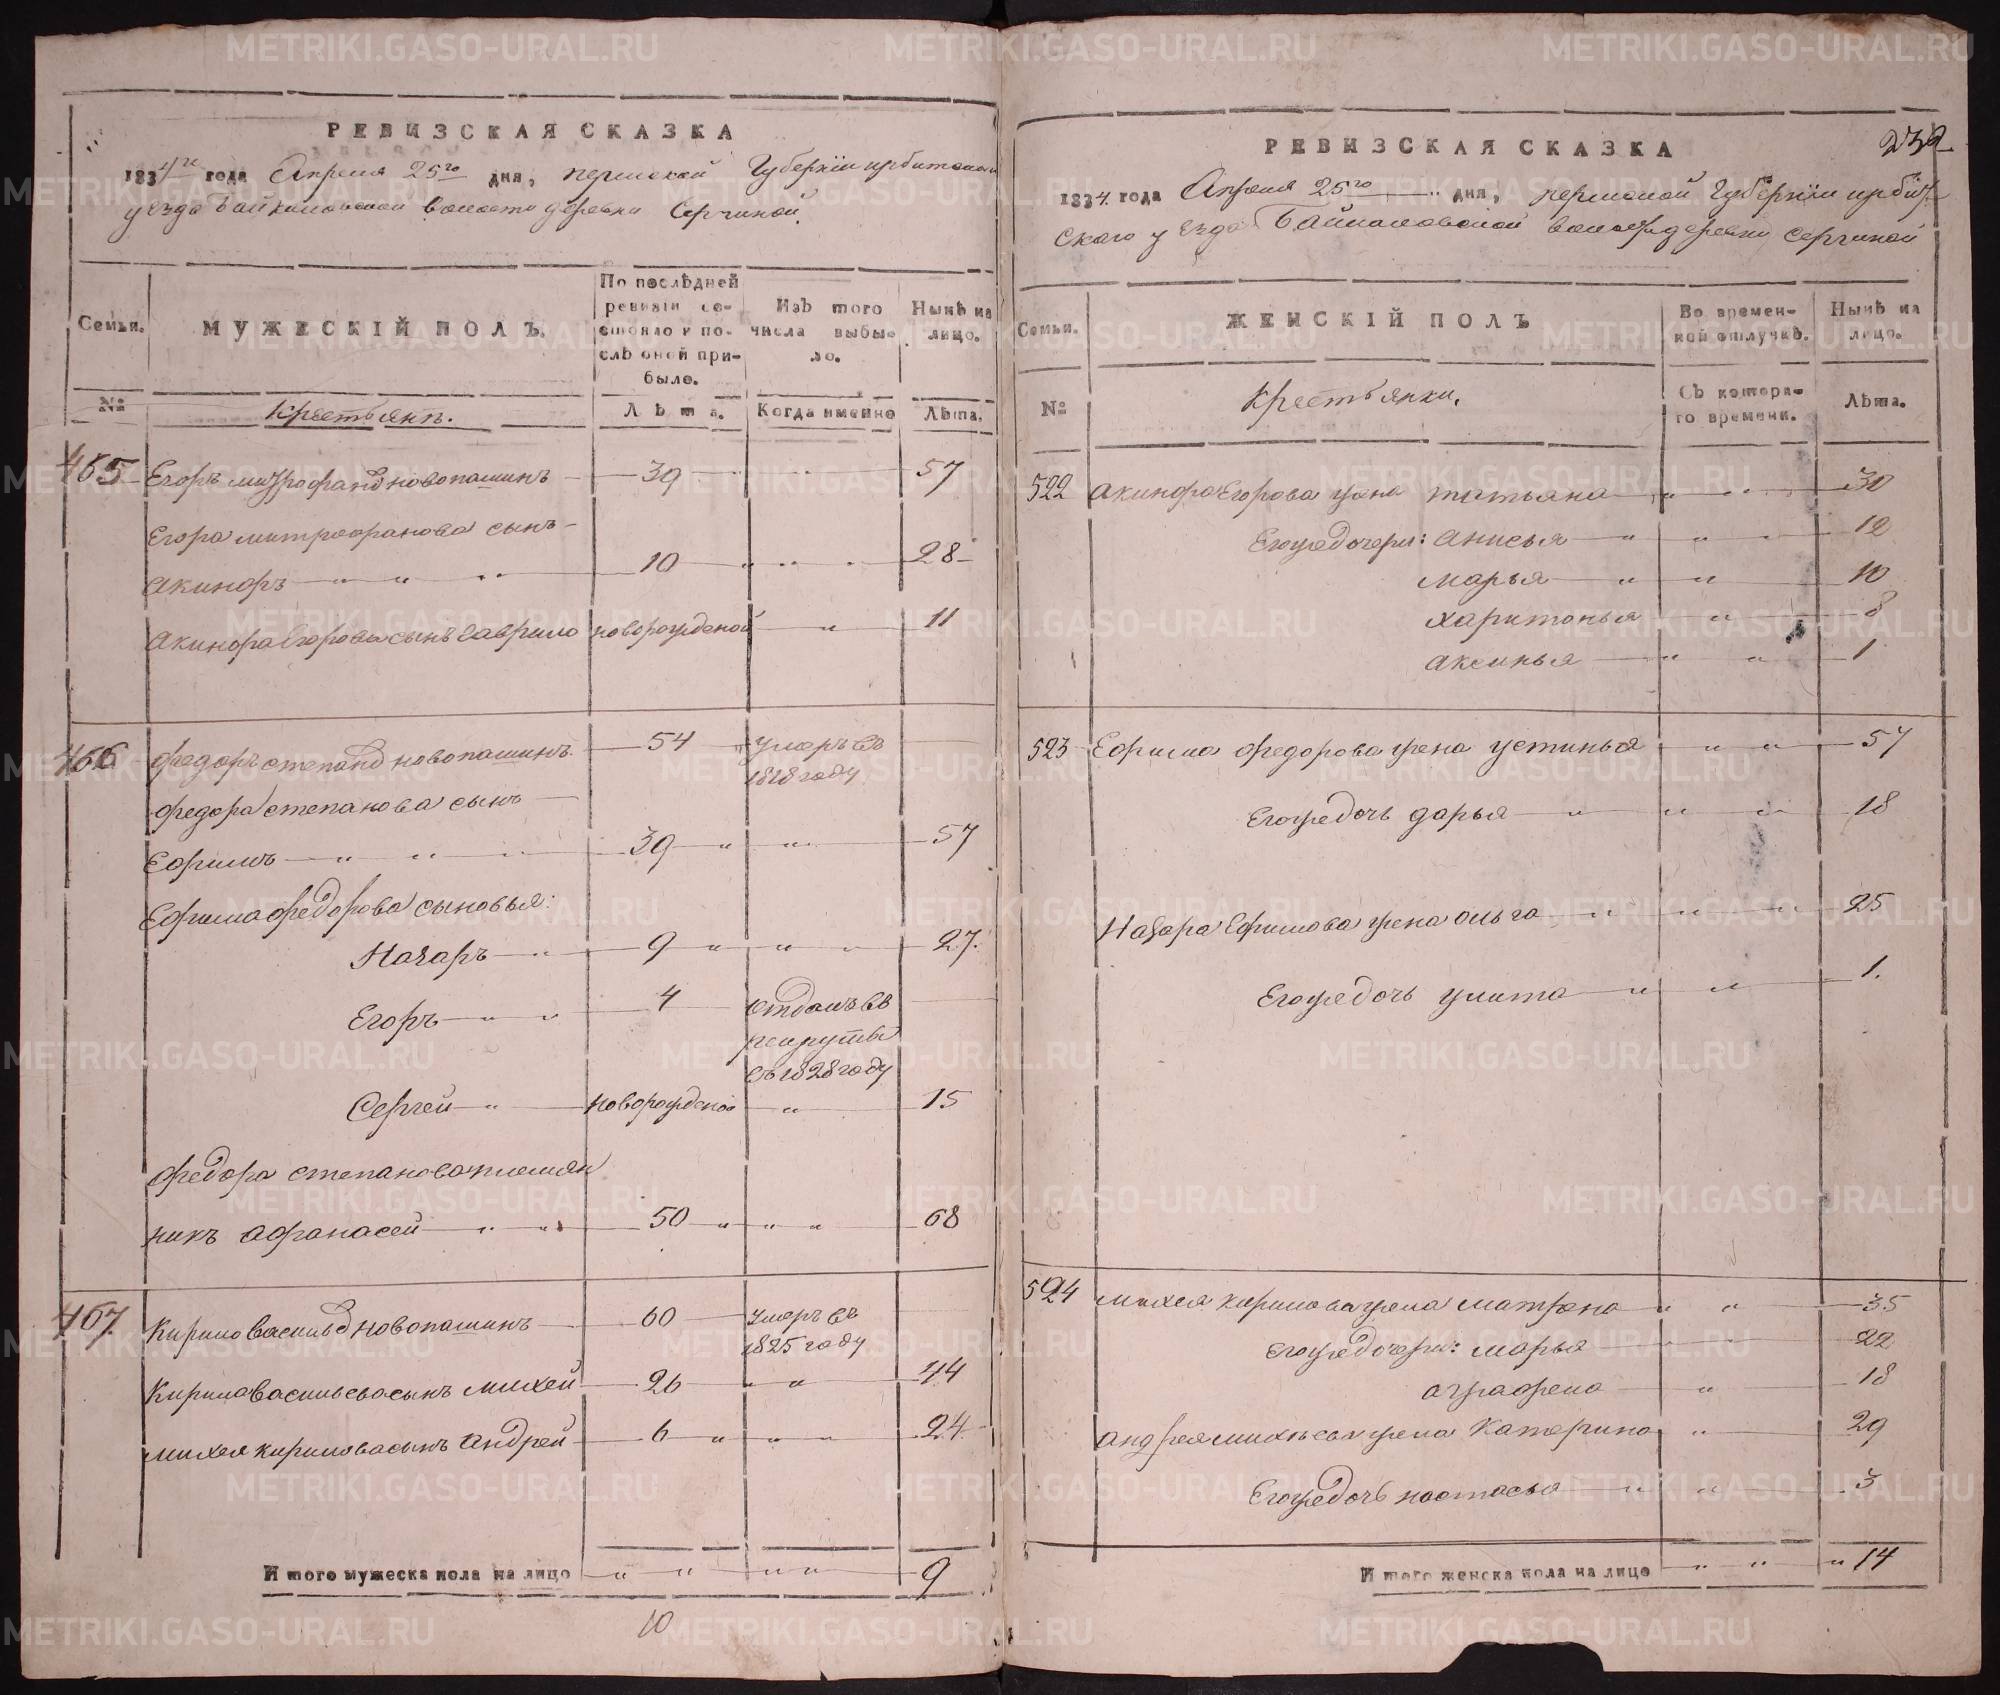 РЕВИЗСКАЯ СКАЗКА
1834го года Апреля 25го дня, пермской Губернiи ирбитскаго
уезда Байкаловской волости деревни Серчиной.
Семьи.
МУЖЕСКIЙ ПОЛЪ.
По послѣдней
ревизiи со-
стояло и по-
слѣ оной при-
было.
Изъ того
числа выбы-
ло.
Нынѣ на
лицо.
№
Крестьянъ.
Лѣта.
Когда именно
Лѣта.
465 Егоръ митрофановъ новопашинъ 39 57
Егора митрофанова сынъ
акинфъ 10 28
акинфа Егорова сынъ гаврило новорожденой 11
466 федоръ степановъ новопашинъ 54 умеръ въ
1818 году
федора степанова сынъ
Ефимъ 39 57
Ефима федорова сыновья:
Назаръ 9 27.
Егоръ 4 отданъ въ
рекруты
въ 1828 году
Сергей новорожденой 15
федора степанова племян
никъ афанасей 50 68
467. Кирило васильевъ новопашинъ 60 умеръ въ
1825 году
Кирила васильева сынъ михей 26 44
михея кирилова сынъ андрей 6 24
Итого мужеска пола на лицо 9
10
232
РЕВИЗСКАЯ СКАЗКА
1834. года Апреля 25го дня, пермской Губернiи ирбит-
скаго уезда Байкаловской волости деревни Серчиной
Семьи.
ЖЕНСКIЙ ПОЛЪ
Во времен-
ной отлучкѣ.
Нынѣ на
лицо.
№
Крестьянки.
Съ котора-
го времени.
Лѣта.
522 акинфа Егорова жена татьяна 30
Егожедочери: анисья 12
марья 10
харитонья 8
аксинья 1
523 Ефима федорова жена устинья 57
Егожедочь дарья 18
Назара Ефимова жена ольга 25
Егожедочь улита 1.
524 михея кирилова жена матрена 35
Егожедочери: марья 22
аграфена 18
андрея михеева жена Катерина 29
Егожедочь настасья 3
Итого женска пола на лицо 14